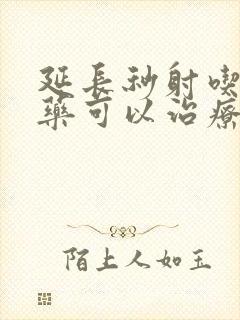 延長秒射喫
藥可以治療
陌上人如玉